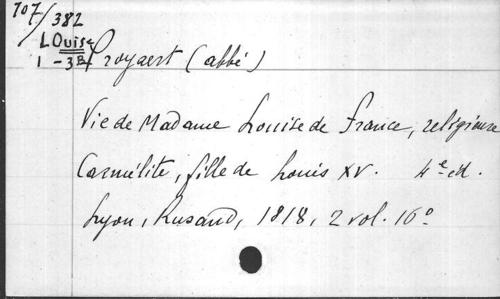 707/382
LOuise
1 - 3B Proyaert (abbé)
Vie de Madame Louise de France, religieuse
Carmélite, fille de Louis XV. 4e éd.
Lyon, Rusand, 1818, 2 vol. 16°